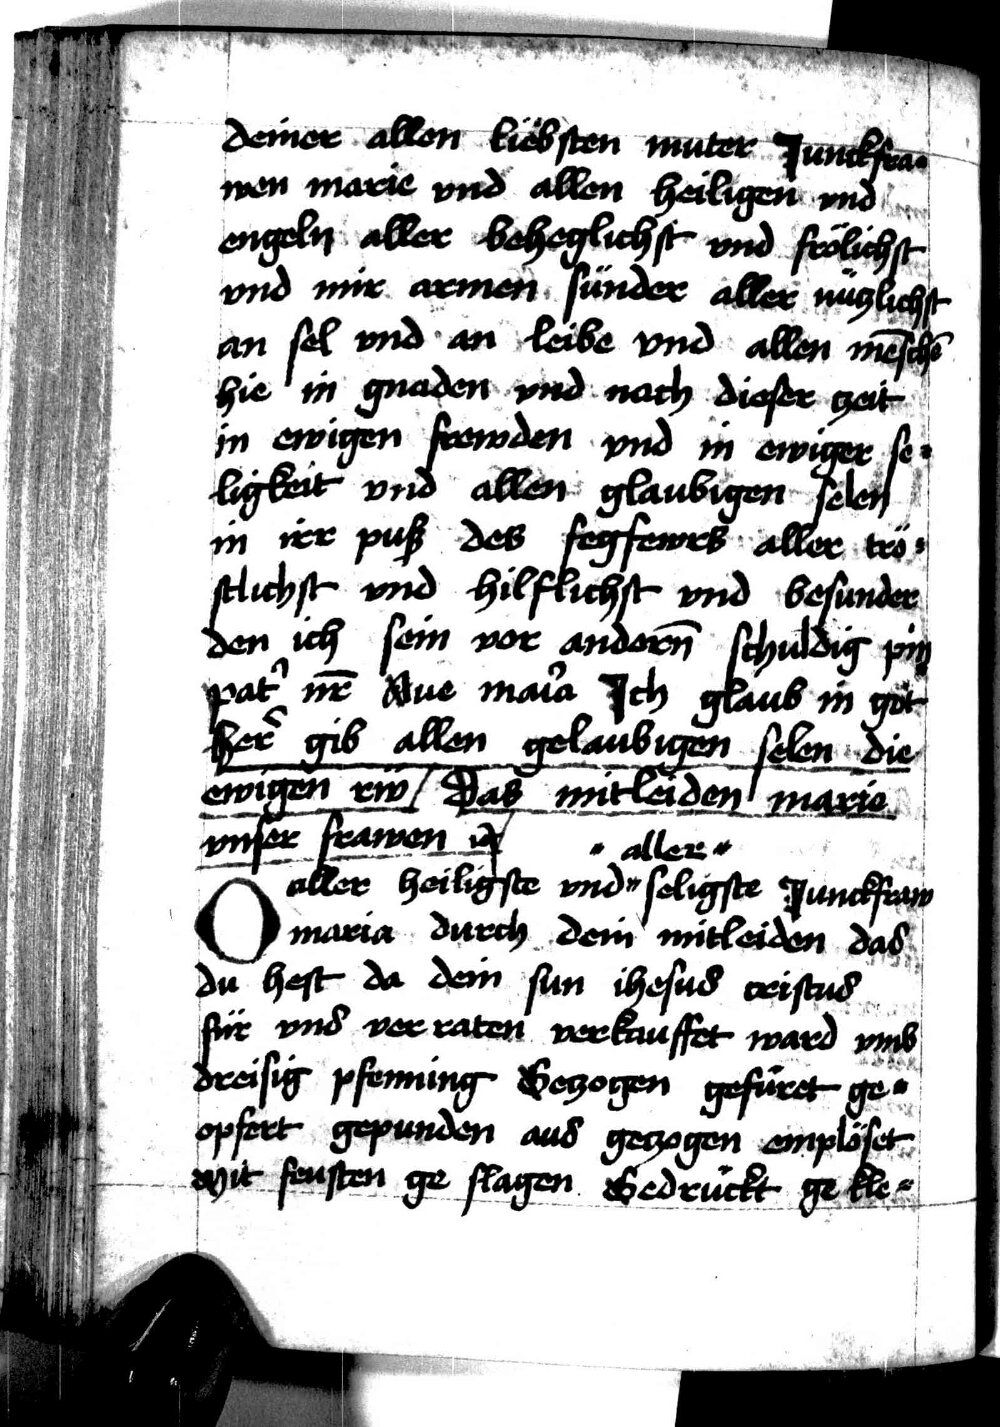 deiner allen liebsten muter Junckfra-
wen marie vnd allen heiligen vnd
engeln aller beheglichst vnd frölichst
vnd mir armen sünder aller nützlichst
an sel vnd an leibe vnd allen mēschē
hie in gnaden vnd nach dieser tzeit
in ewigen frewden vnd in ewiger se-
ligkeit vnd allen glaubigen selen
in irr puß des fegfewrs aller trö-
stlichst vnd hilflichst vnd besunder
den ich sein vor andern̄ schuldig pin
pat' nr̄ Aue mar'a Ich glaub in got
Her' gib allen gelaubigen selen die
ewigen rüw / Das mitleiden marie
vnser frawen
" aller "
O aller heiligste vnd " seligste Junckfraw
maria durch dein mitleiden das
du hest da dein sun ihesus cristus
für vns verraten verkauffet ward vmb
dreisig pfenning Getzogen gefüret ge-
opfert gepunden aus getzogen emplöset
Mit feusten ge slagen Gedrückt ge kle-